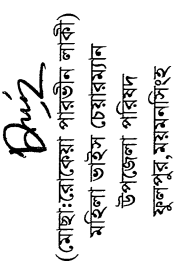 (মোছা:রোকেয়া পারভীন লাকী)
মহিলা ভাইস চেয়ারম্যান
উপজেলা পরিষদ
ফুলপুর,ময়মনসিংহ